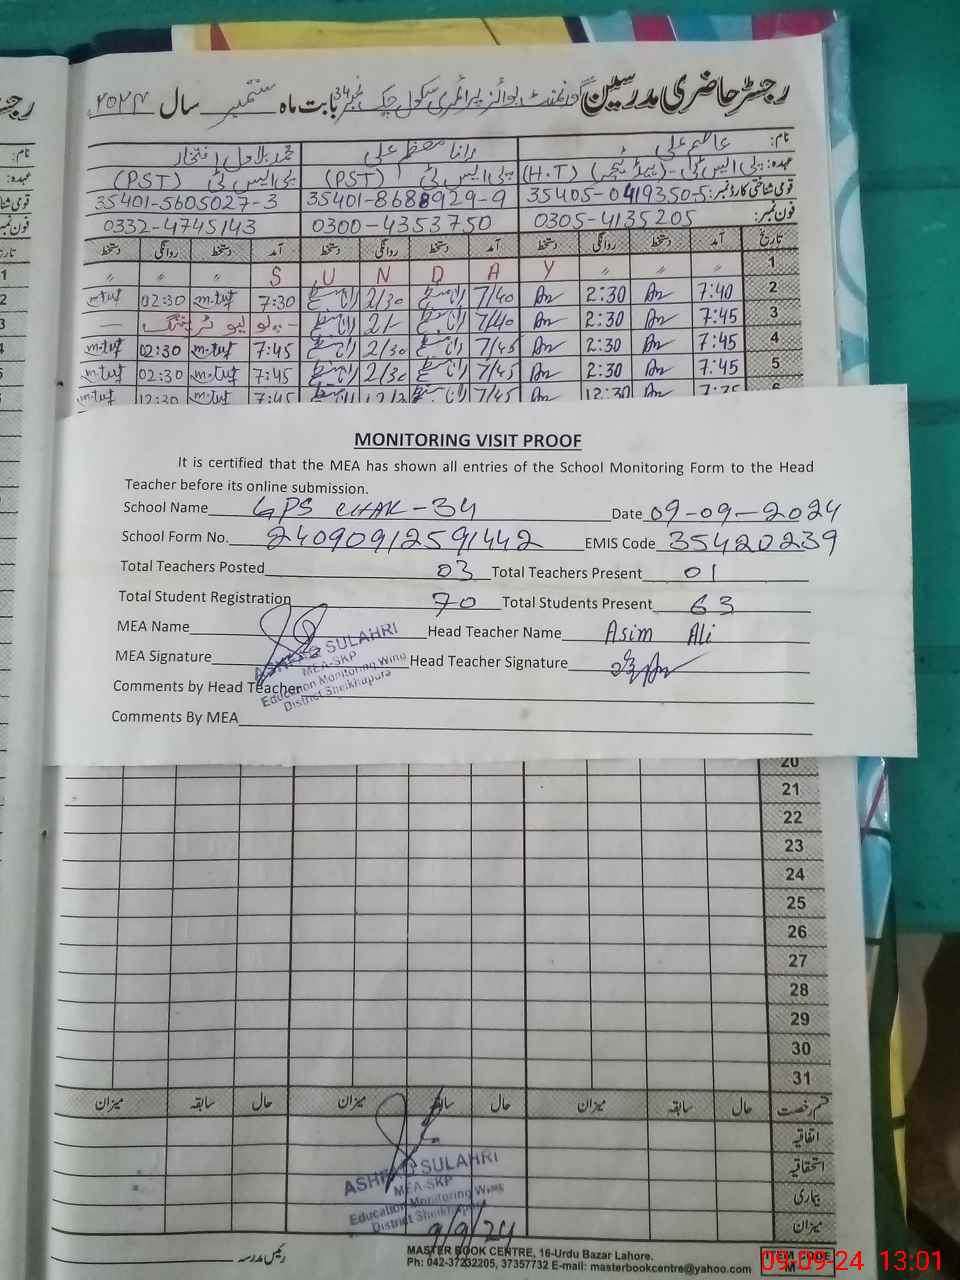 رجسٹر حاضری مدرسین گورنمنٹ بوائز پرائمری سکول چک نمبر 34 بابت ماہ ستمبر سال ۲۰۲۴
نام: عاصم علی رانا معظم علی محمد بلاول افتخار
عہدہ: پی ایس ٹی - (ہیڈ ٹیچر) (H.T) پی ایس ٹی (PST) پی ایس ٹی (PST)
قومی شناختی کارڈ نمبر: 35405-0419350-5 35401-8688929-9 35401-5605027-3
فون نمبر: 0305-4135205 0300-4353750 0332-4745143
تاریخ آمد دستخط روانگی دستخط آمد دستخط روانگی دستخط آمد دستخط روانگی دستخط
1 〃 〃 〃 S U N D A Y 〃 〃 〃
2 7:40 2:30 7/40 2/30 7:30 m.tuf 02:30 m.tuf
3 7:45 2:30 7/40 2/- - پولیو ٹریننگ -
4 7:45 2:30 7/45 2/30 7:45 m.tuf 02:30 m.tuf
5 7:45 2:30 7/45 2/30 7:45 m.tuf 02:30 m.tuf
6 12:30 7/45 7:45 m.tuf 12:30 m.tuf
MONITORING VISIT PROOF
It is certified that the MEA has shown all entries of the School Monitoring Form to the Head
Teacher before its online submission.
School Name GPS CHAK-34 Date 09-09-2024
School Form No. 24090912591442 EMIS Code 35420239
Total Teachers Posted 03 Total Teachers Present 01
Total Student Registration 70 Total Students Present 63
MEA Name Head Teacher Name Asim Ali
MEA Signature Head Teacher Signature
SULAHRI
MEA-SKP
Education Monitoring Wing
District Sheikhupura
Comments by Head Teacher
Comments By MEA
20
21
22
23
24
25
26
27
28
29
30
31
قسم رخصت حال سابقہ میزان حال سابقہ میزان حال سابقہ میزان
اتفاقیہ
استحقاقیہ
بیماری
میزان
SULAHRI
MEA-SKP
Education Monitoring Wing
District Sheikhupura
9/9/24
رئیس مدرسہ
MASTER BOOK CENTRE, 16-Urdu Bazar Lahore.
Ph: 042-37232205, 37357732 E-mail: masterbookcentre@yahoo.com
ITEM CODE
M
09-09-24 13:01